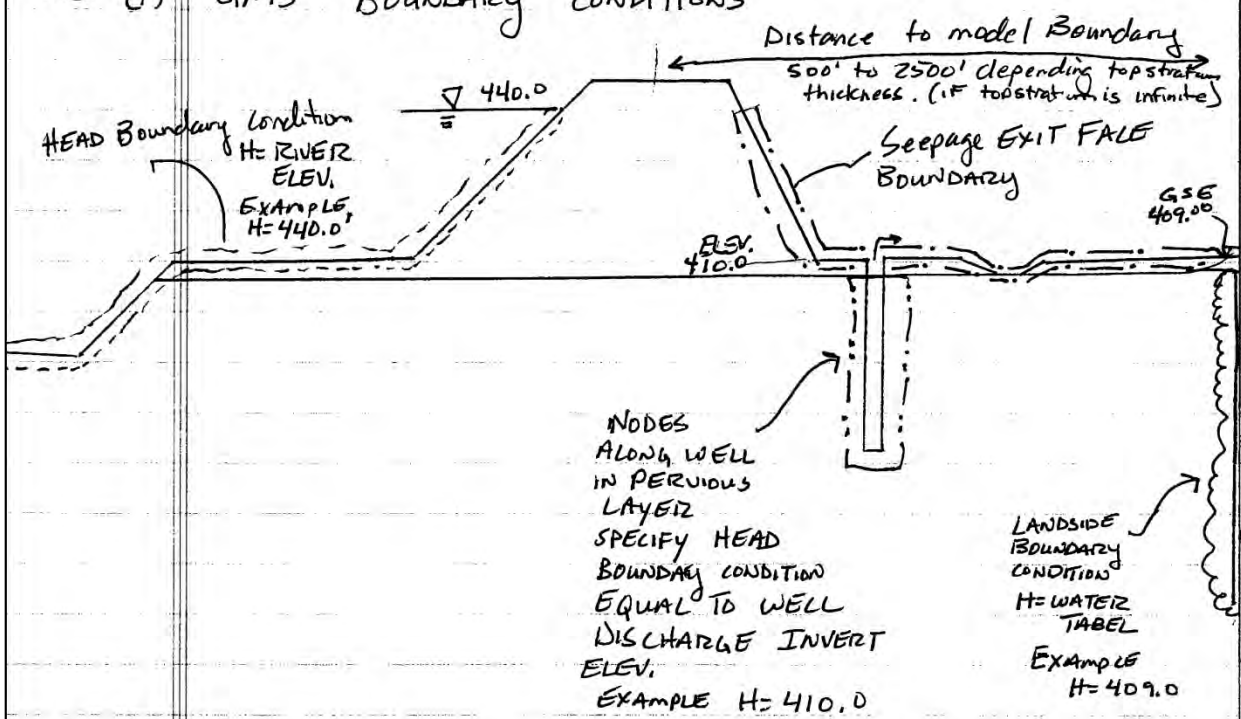 GMS BOUNDARY CONDITIONS
Distance to model Boundary
500' to 2500' depending topstratum
thickness. (IF topstratum is infinite)
440.0
HEAD Boundary Condition
H= RIVER
ELEV.
EXAMPLE,
H= 440.0'
Seepage EXIT FACE
BOUNDARY
GSE
409.00
ELEV.
410.0
NODES
ALONG WELL
IN PERVIOUS
LAYER
SPECIFY HEAD
BOUNDAY CONDITION
EQUAL TO WELL
DISCHARGE INVERT
ELEV.
EXAMPLE H= 410.0
LANDSIDE
BOUNDARY
CONDITION
H= WATER
TABEL
EXAMPLE
H= 409.0